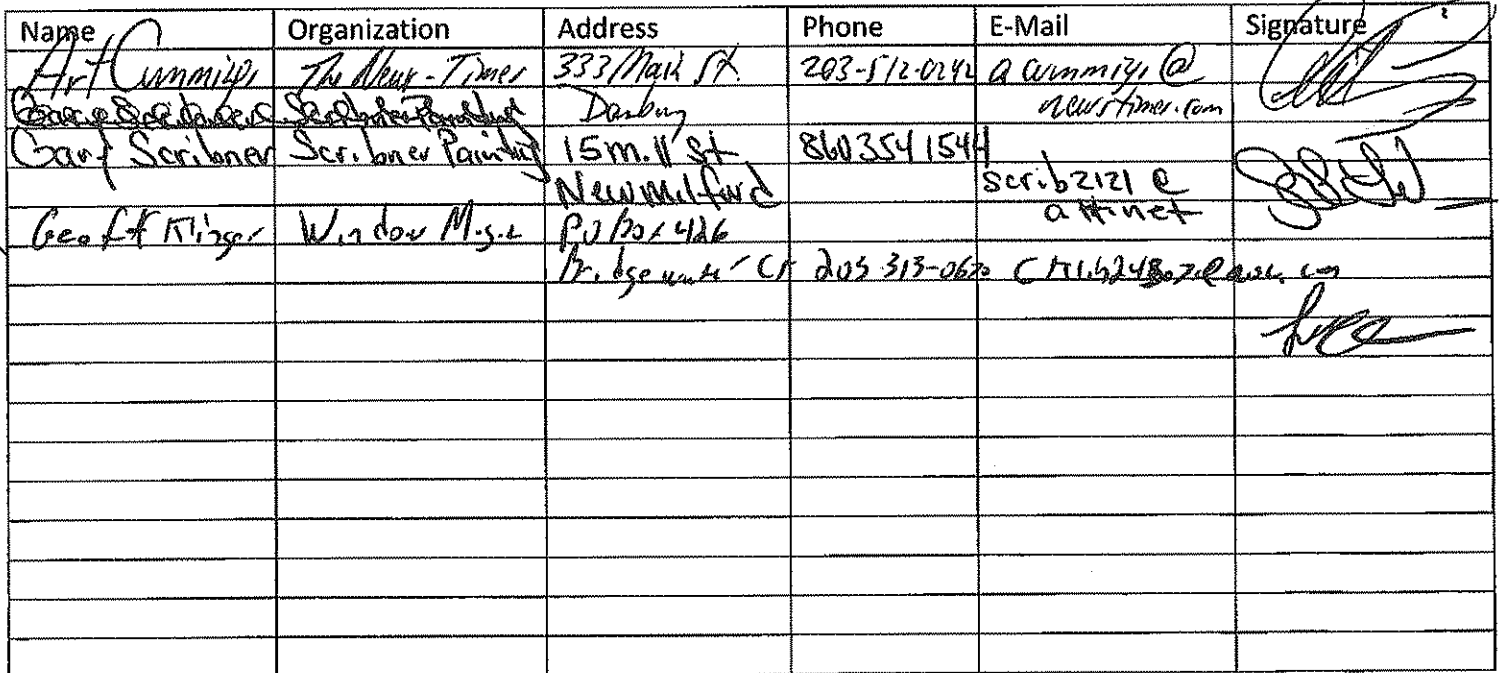 Name Organization Address Phone E-Mail Signature
Art Cummings The News-Times 333 Main St. 203-512-0242 acummings@
Danbury newstimes.com
Gary Scribner Scribner Painting 15 Mill St 8603541544
New Milford scrib2121@
att.net
Geoff Window PO Box 426
Bridgewater CT 203 313-0620